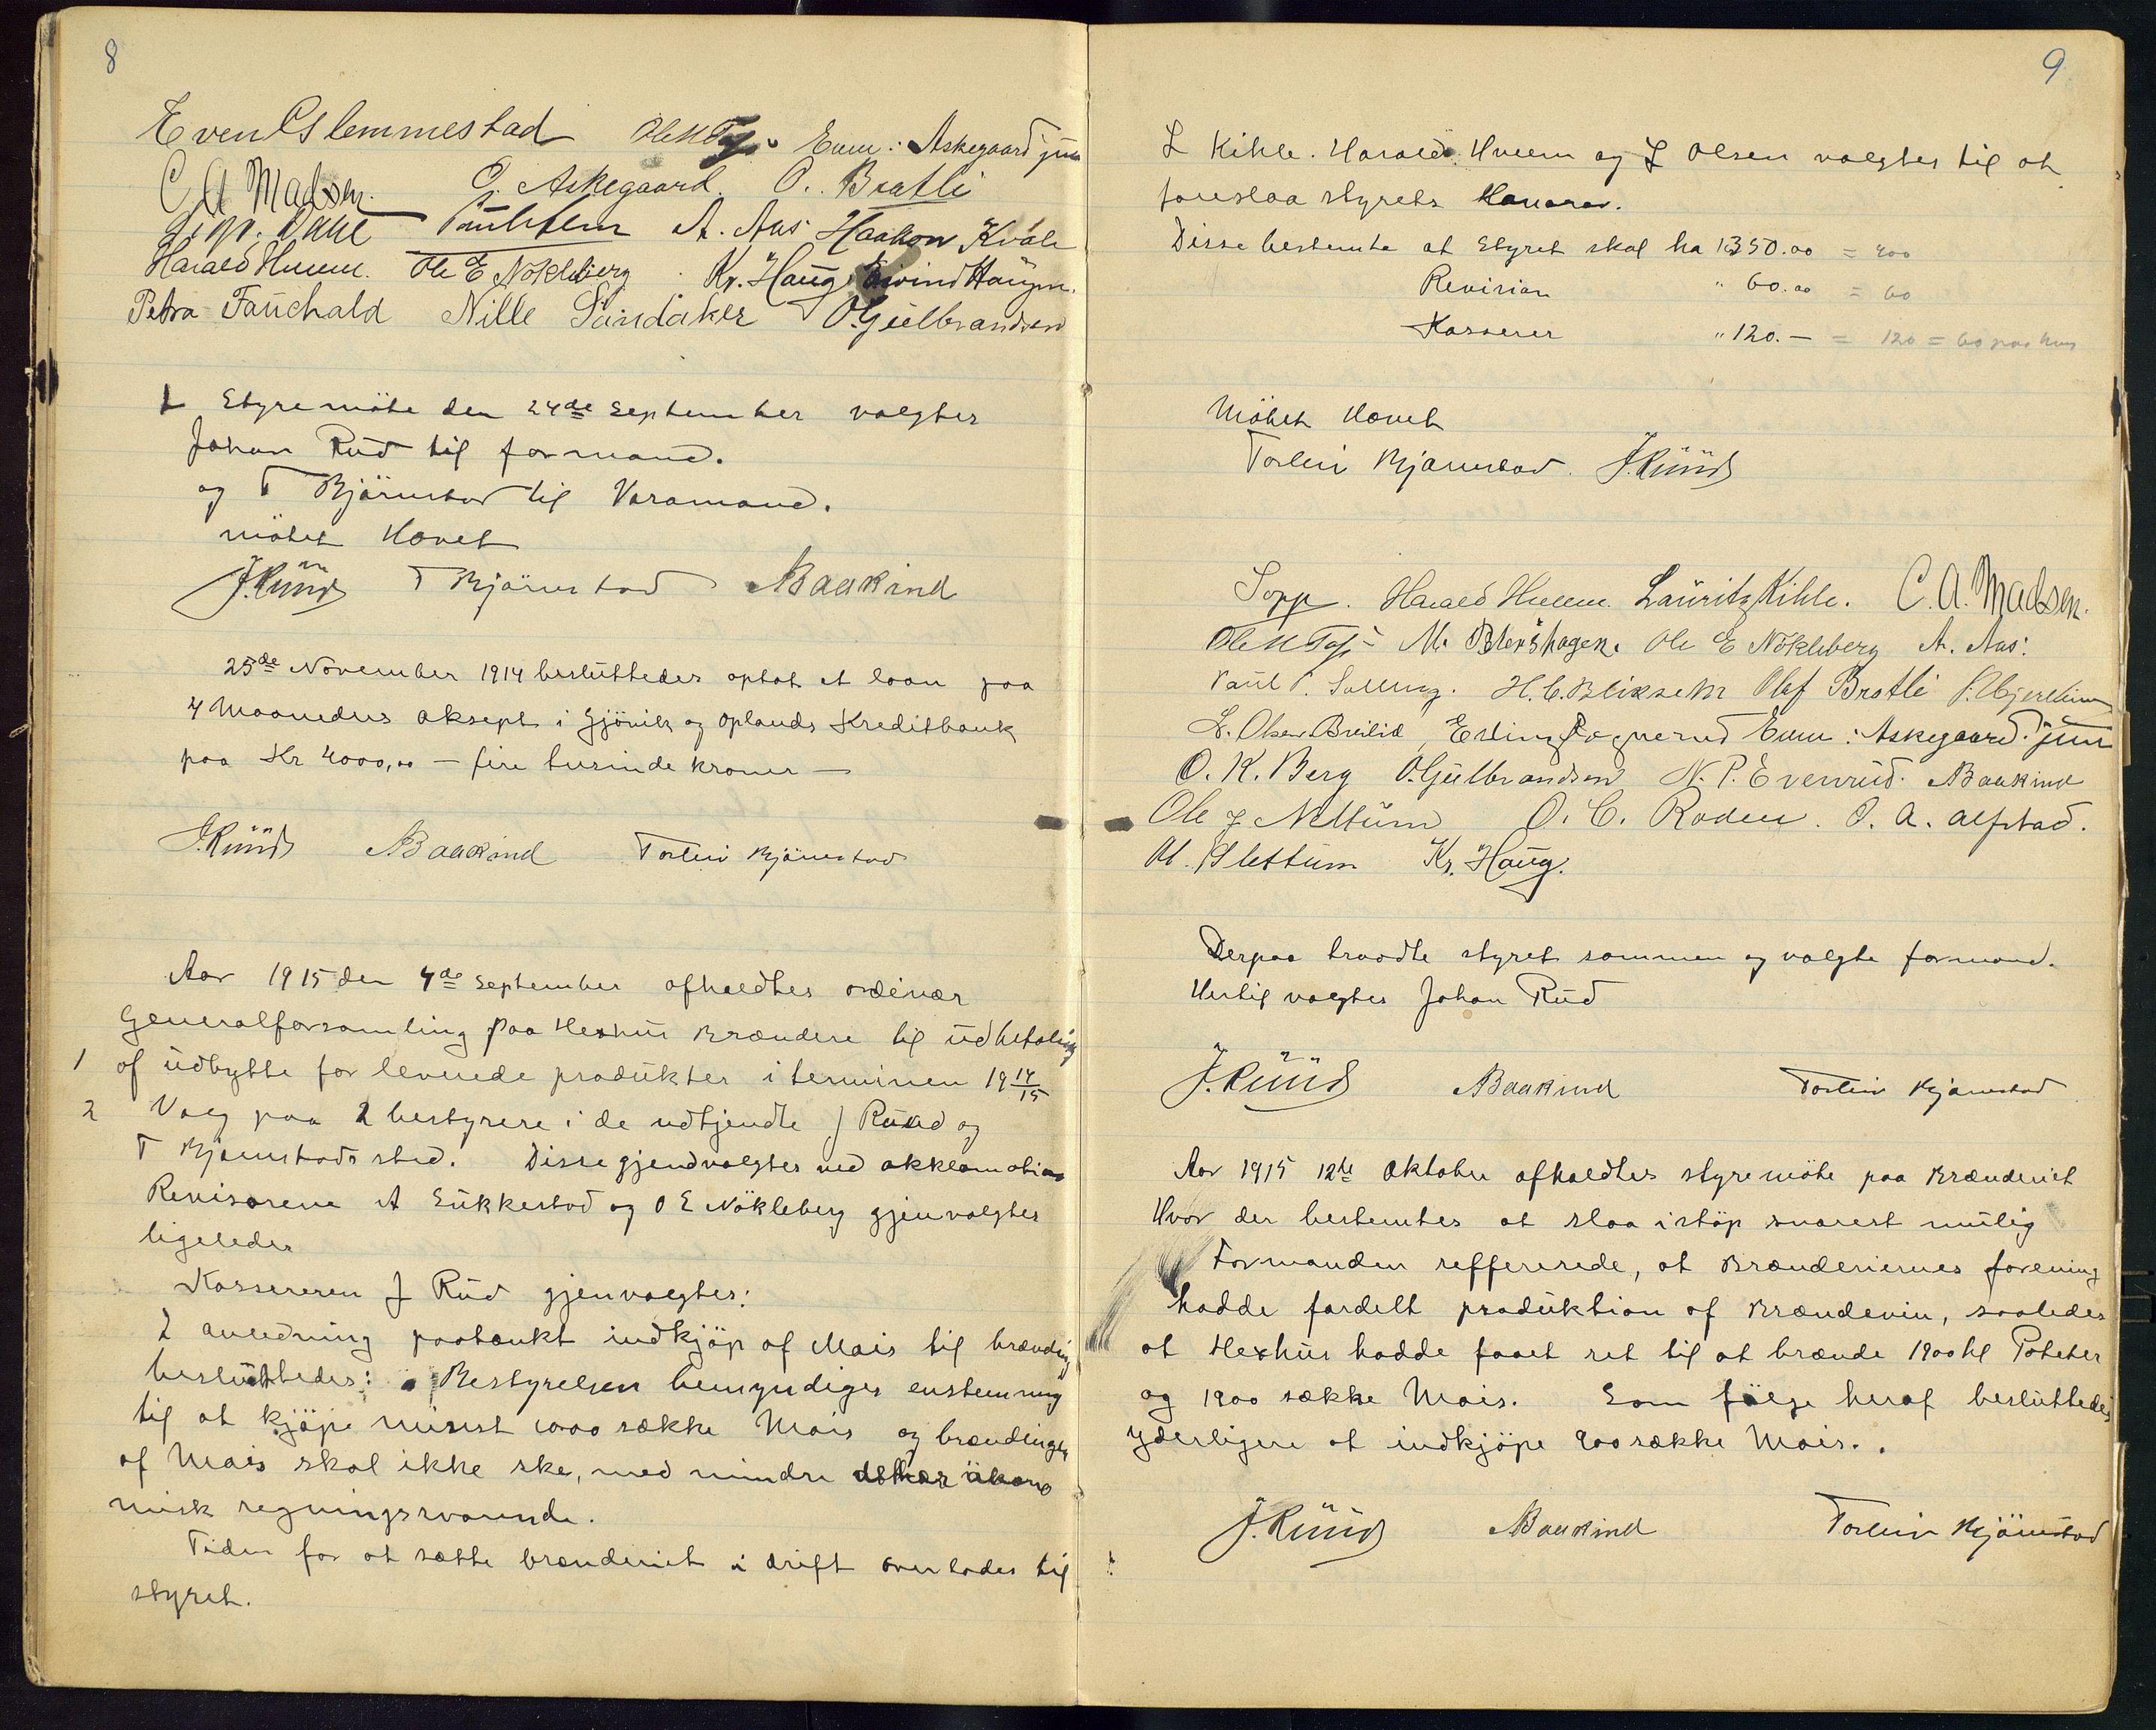 8
Even Slemmestad Ole M Emm: Askegaard jun
C A Madsen. G. Askegaard. O. Bratli
A. Aas Haakon Kvale
Harald Hveem. Ole E Nökleberg Kr. Haug. Eivind Haugen.
Petra Fauchald Nille Sandaker O. Gulbrandsen
I Styremöte den 24de September valgtes
Johan Rud til formand.
og T Bjørnstad til Varamand.
mötet Hævet
J. Ruud T Bjørnstad A Baakind
25de November 1914 besluttedes optat et laan paa
4 Maaneders aksept i Gjøvik og Oplands Kreditbank
paa Kr 4000,00 – fire tusinde kroner –
J. Ruud A Baakind Torleiv Bjørnstad
Aar 1915 den 4de September afholdtes ordinær
Generalforsamling paa Hexhus Brænderi til udbetaling
1 af udbytte for leverede produkter i terminen 19 14/15
2 Valg paa 2 bestyrere i de udtjendte J Ruud og
T Bjørnstads sted. Disse gjendvalgtes ved akklamation
Revisorene A Sukkestad og O E Nökleberg gjenvalgtes
ligeledes
Kassereren J Rud gjenvalgtes:
I anledning paatænkt indkjöp af Mais til brænding
besluttedes: Bestyrelsen bemyndiges enstemmig
til at kjöpe mindst 1000 sække Mais og brændingen
af Mais skal ikke ske, med mindre det er økono
misk regningsvarende.
Tiden for at sætte brænderiet i drift overlades til
styret.
9
L Kihle. Harald Hveem og L Olsen valgtes til at
foreslaa styrets Honorar.
Disse bestemte at Styret skal ha 1350.00 = 400
Revision " 60.00 = 60
Kasserer " 120.– = 120 = 60 paa hver
Mötet Hævet
Torleiv Bjørnstad. J. Ruud
Sopp. Harald Hveem. Lauritz Kihle. C. A. Madsen.
Ole M M. Blershagen. Ole E Nökleberg A. Aas:
Paul P. H. C. Bliksem Olaf Bratli
L. Olsen Breilid, Erling Rognerud Emm: Askegaard. jun
O. K. Berg O. Gulbrandsen N. P. Evenrud. A Baakind
Ole J. Nettum O. C. Roden. O. A. Alfstad.
M. Slettum Kr. Haug.
Derpaa traadte styret sammen og valgte formand.
Hertil valgtes Johan Rud
J. Ruud A Baakind Torleiv Bjørnstad
Aar 1915 12te Oktober afholdtes styremöte paa Brænderiet
Hvor der bestemtes at slaa istöp snarest mulig
Formanden reffererede, at Brænderiernes forening
hadde fordelt produktion af Brændevin, saaledes
at Hexhus hadde faaet ret til at brænde 1900 hl Poteter
og 1900 sække Mais. Som fölge heraf besluttedes
yderligere at indkjöpe 900 sække Mais.
J. Ruud A Baakind Torleiv Bjørnstad